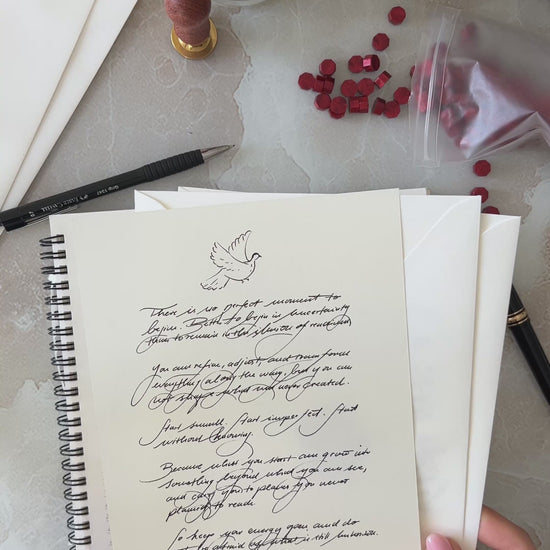 There is no perfect moment to
begin. Better to begin in uncertainty
than to remain in the illusion of readiness.
You can refine, adjust, and
everything along the way, but you can
not what was never created.
Start small. Start imperfect. Start
without knowing.
Because what you start can grow into
something beyond what you can see,
and carry you to places you never
planned to reach.
So keep you energy open and do
not be afraid what is still unknown.